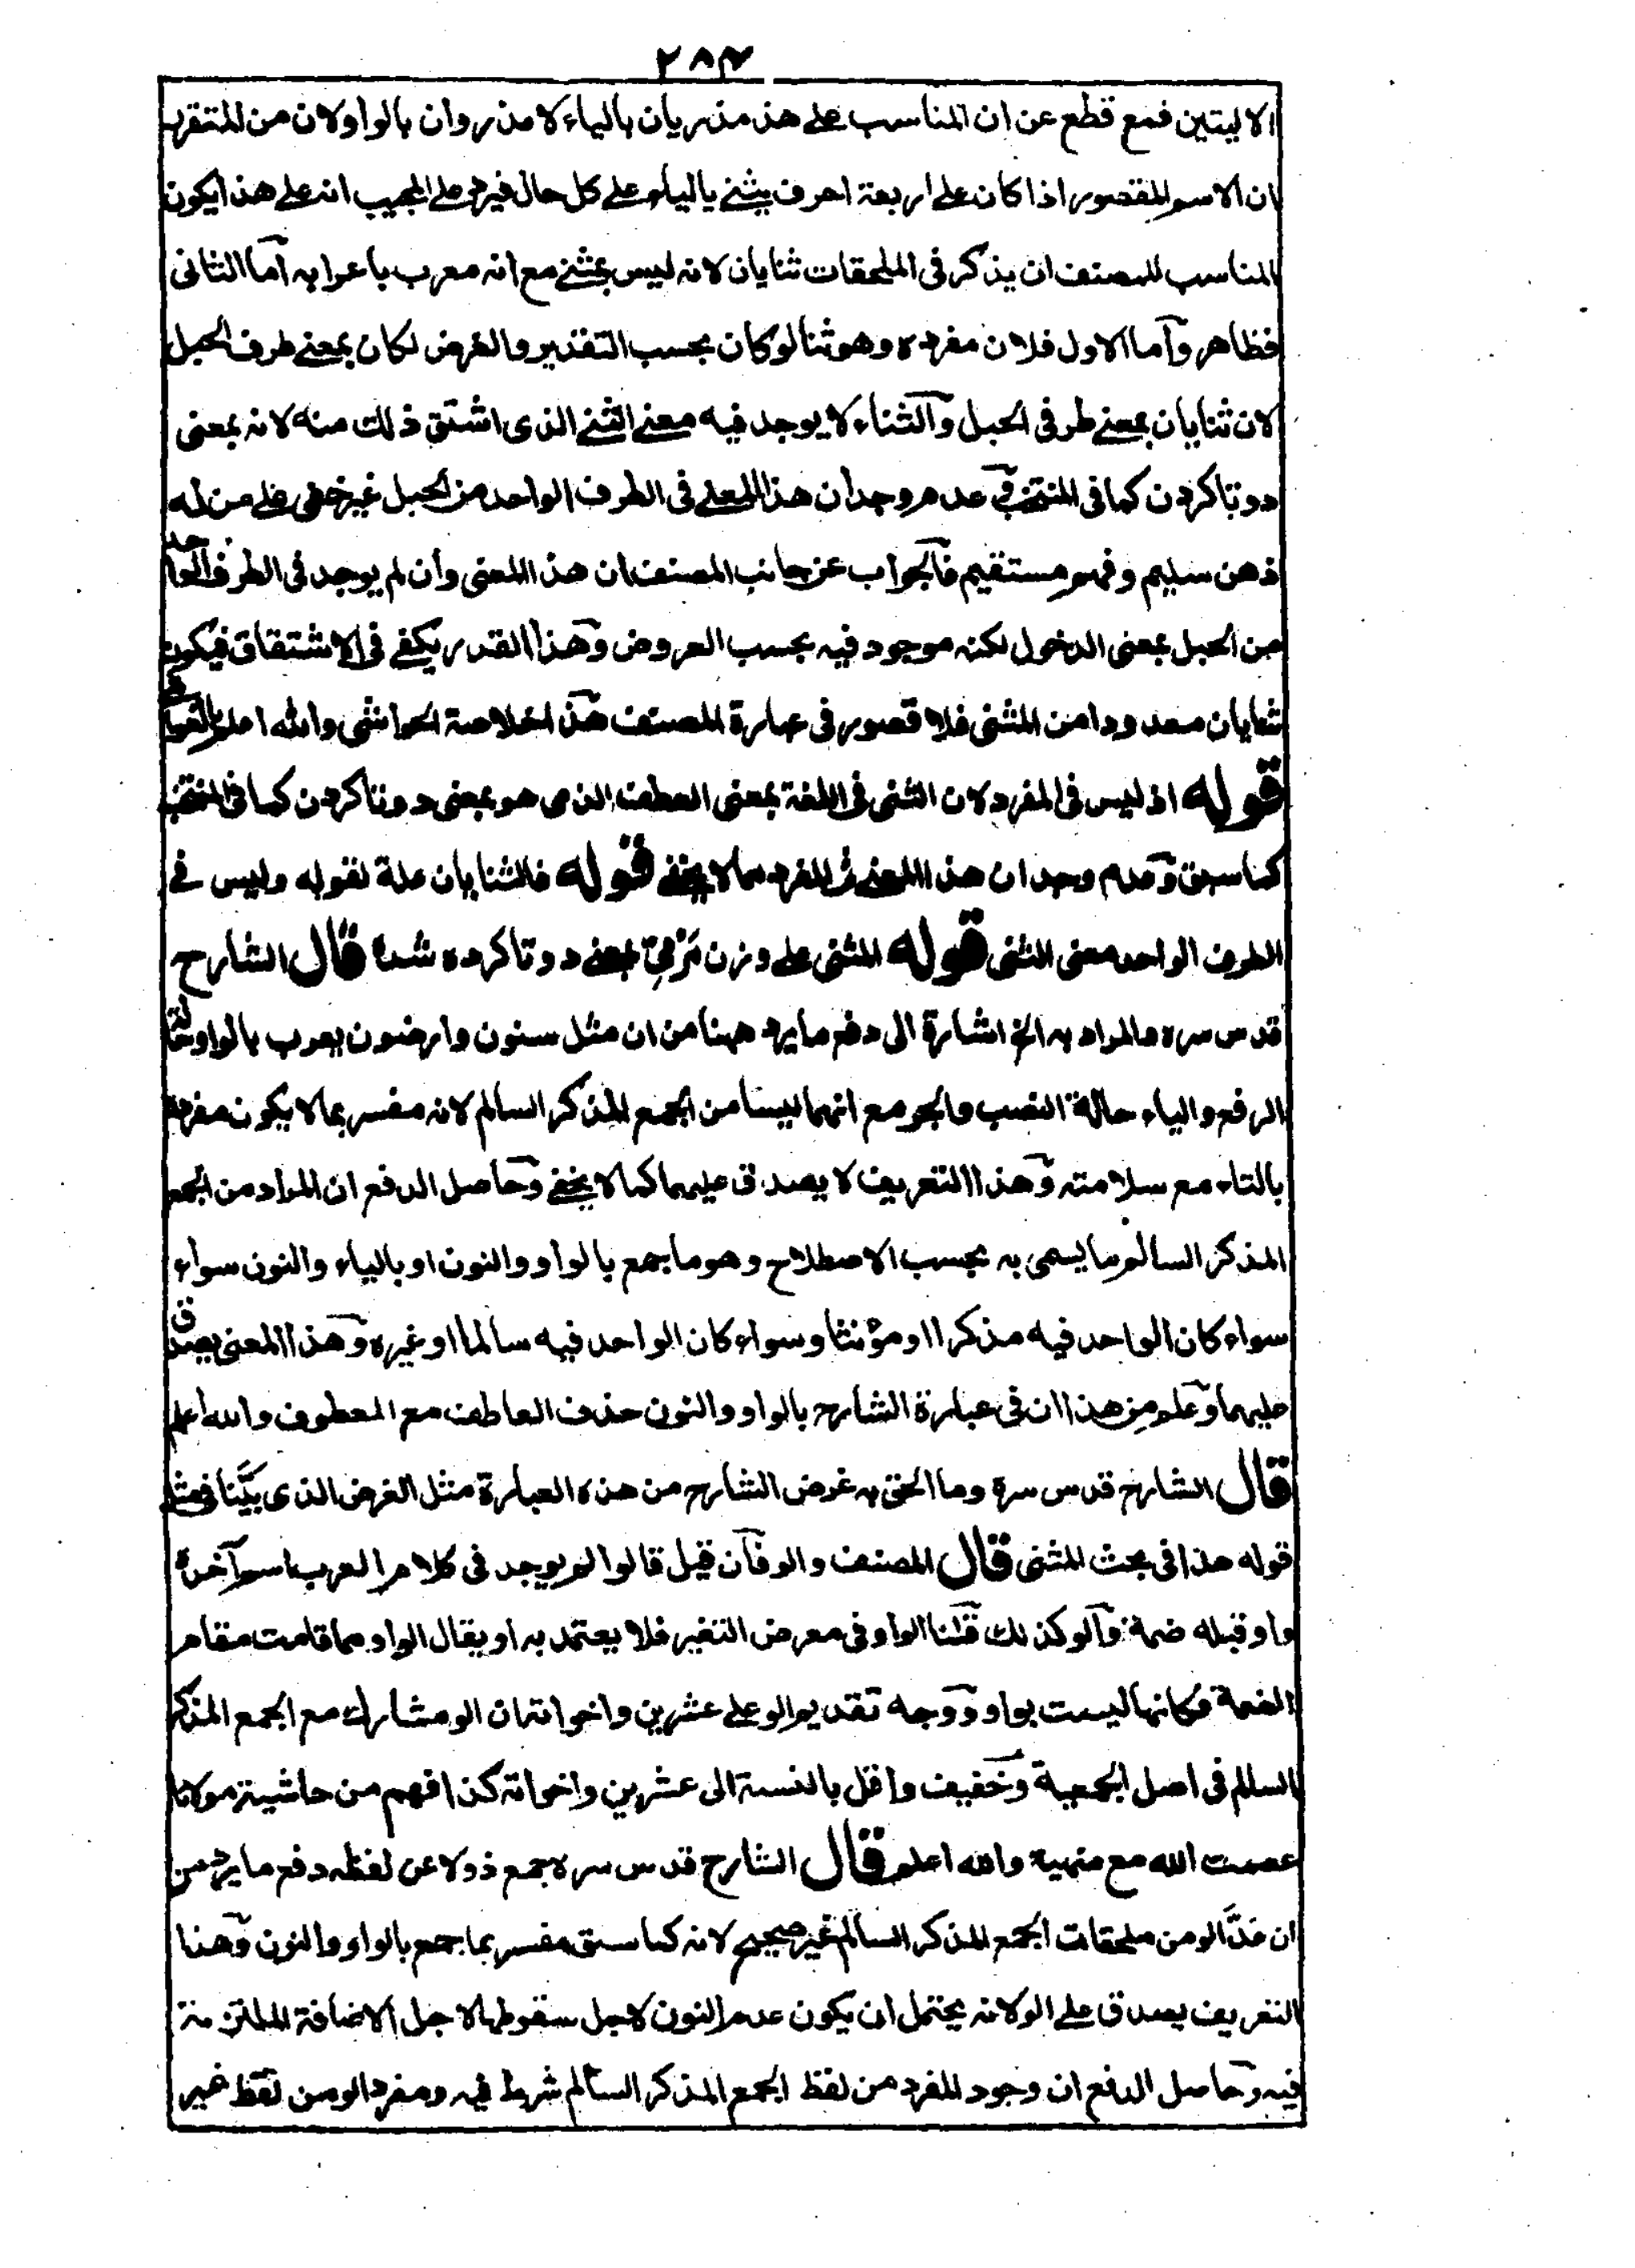 ٢٨٤
الاليتين فمع قطع عن ان المناسب على هذ مذريان بالياء لا مذروان بالواو لان من المتقرر
ان الاسم المقصور اذا كان على اربعة احرف يثنى بالياء على كل حال فيرد على المجيب انه على هذا يكون
المناسب للمصنف ان يذكر فى الملحقات ثنايان لانه ليس بمثنى مع انه معرب باعرابه اما الثانى
فظاهر واما الاول فلان مفرده وهو ثنا لو كان بحسب التقدير والفرض لكان بمعنى طرف الحبل
لان ثنايان بمعنى طرفى الحبل والثناء لا يوجد فيه معنى الثنى الذى اشتق ذلك منه لانه بمعنى
دوتا كردن كما فى المنتخب وعدم وجدان هذا المعنى فى الطرف الواحد من الحبل غير خفى على من له
ذهن سليم وفهم مستقيم فالجواب عن جانب المصنف ان هذا المعنى وان لم يوجد فى الطرف الواحد
من الحبل بمعنى الدخول لكنه موجود فيه بحسب العروض وهذا القدر يكفى فى الاشتقاق فيكون
ثنايان معدودا من المثنى فلا قصور فى عبارة المصنف هذا خلاصة الحواشى والله اعلم بالصواب
قوله اذ ليس فى المفرد لان الثنى فى اللغة بمعنى العطف الذى هو بمعنى دوتا كردن كما فى المنتخب
كما سبق وعدم وجدان هذا المعنى فى المفرد مما لا يخفى قوله فالثنايان علة لقوله وليس فى
الطرف الواحد معنى الثنى قوله المثنى على وزن مَرْمِيّ بمعنى دوتا كرده شده قال الشارح
قدس سره والمراد به الخ اشارة الى دفع ما يرد ههنا من ان مثل سنون وارضون يعرب بالواو حالة
الرفع والياء حالة النصب والجر مع انهما ليسا من الجمع المذكر السالم لانه مفسر بما لا يكون مفرده
بالتاء مع سلامته وهذا التعريف لا يصدق عليهما كما لا يخفى وحاصل الدفع ان المراد من الجمع
المذكر السالم ما يسمى به بحسب الاصطلاح وهو ما جمع بالواو والنون او بالياء والنون سواء
سواء كان الواحد فيه مذكرا او مؤنثا وسواء كان الواحد فيه سالما او غيره وهذا المعنى يصدق
عليهما وعلم من هذا ان فى عبارة الشارح بالواو والنون حذف العاطف مع المعطوف والله اعلم
قال الشارح قدس سره وما الحق به غرض الشارح من هذه العبارة مثل الغرض الذى بيّنا فى مثل
قوله هذا فى بحث المثنى قال المصنف والو فان قيل قالوا لم يوجد فى كلام العرب اسم آخره
واو قبله ضمة والو كذلك قلنا الواو فى معرض التغير فلا يعتمد به او يقال الواو مما قامت مقام
الضمة فكانها ليست بواو ووجه تقديم الو على عشرين واخواتها ان الو مشارك مع الجمع المذكر
السالم فى اصل الجمعية وخفيف واقل بالنسبة الى عشرين واخواته كذا فهم من حاشية مولانا
عصمت الله مع منهية والله اعلم قال الشارح قدس سره جمع ذو لا عن لفظه دفع ما يرد من
ان عَدّ الو من ملحقات الجمع المذكر السالم غير صحيح لانه كما سبق مفسر بما جمع بالواو والنون وهذا
التعريف يصدق على الو لانه يحتمل ان يكون عدم النون لاجل سقوطها لاجل الاضافة الملتزمة
فيه وحاصل الدفع ان وجود المفرد من لفظ الجمع المذكر السالم شرط فيه ومفرد الو من لفظ غير